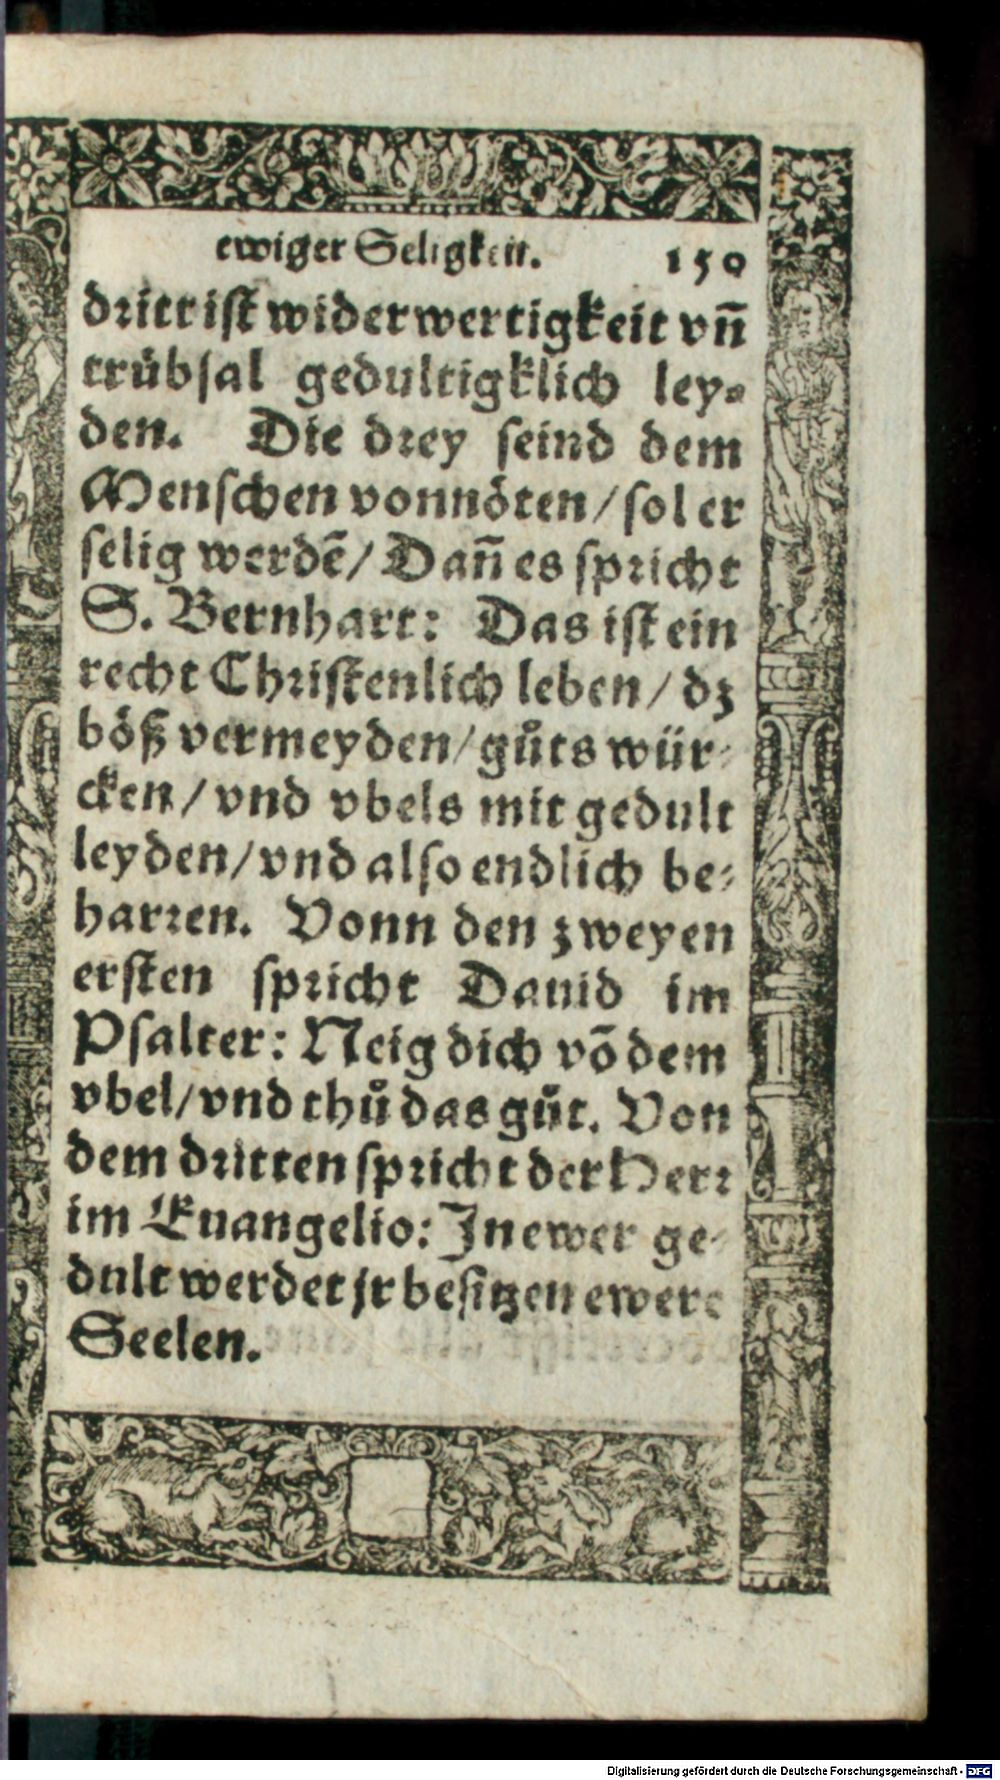 ewiger Seligkeit. 150
dritt ist widerwertigkeit vñ
trübsal gedultigklich ley⸗
den. Die drey seind dem
Menschen vonnöten / sol er
selig werdē / Dañ es spricht
S. Bernhart: Das ist ein
recht Christenlich leben / dz
böß vermeyden / gůts wür⸗
cken / vnd vbels mit gedult
leyden / vnd also endlich be⸗
harren. Vonn den zweyen
ersten spricht Dauid im
Psalter: Neig dich vō dem
vbel / vnd thů das gůt. Von
dem dritten spricht der Herr
im Euangelio: In ewer ge⸗
dult werdet jr besitzen ewere
Seelen.
Digitalisierung gefördert durch die Deutsche Forschungsgemeinschaft - DFG